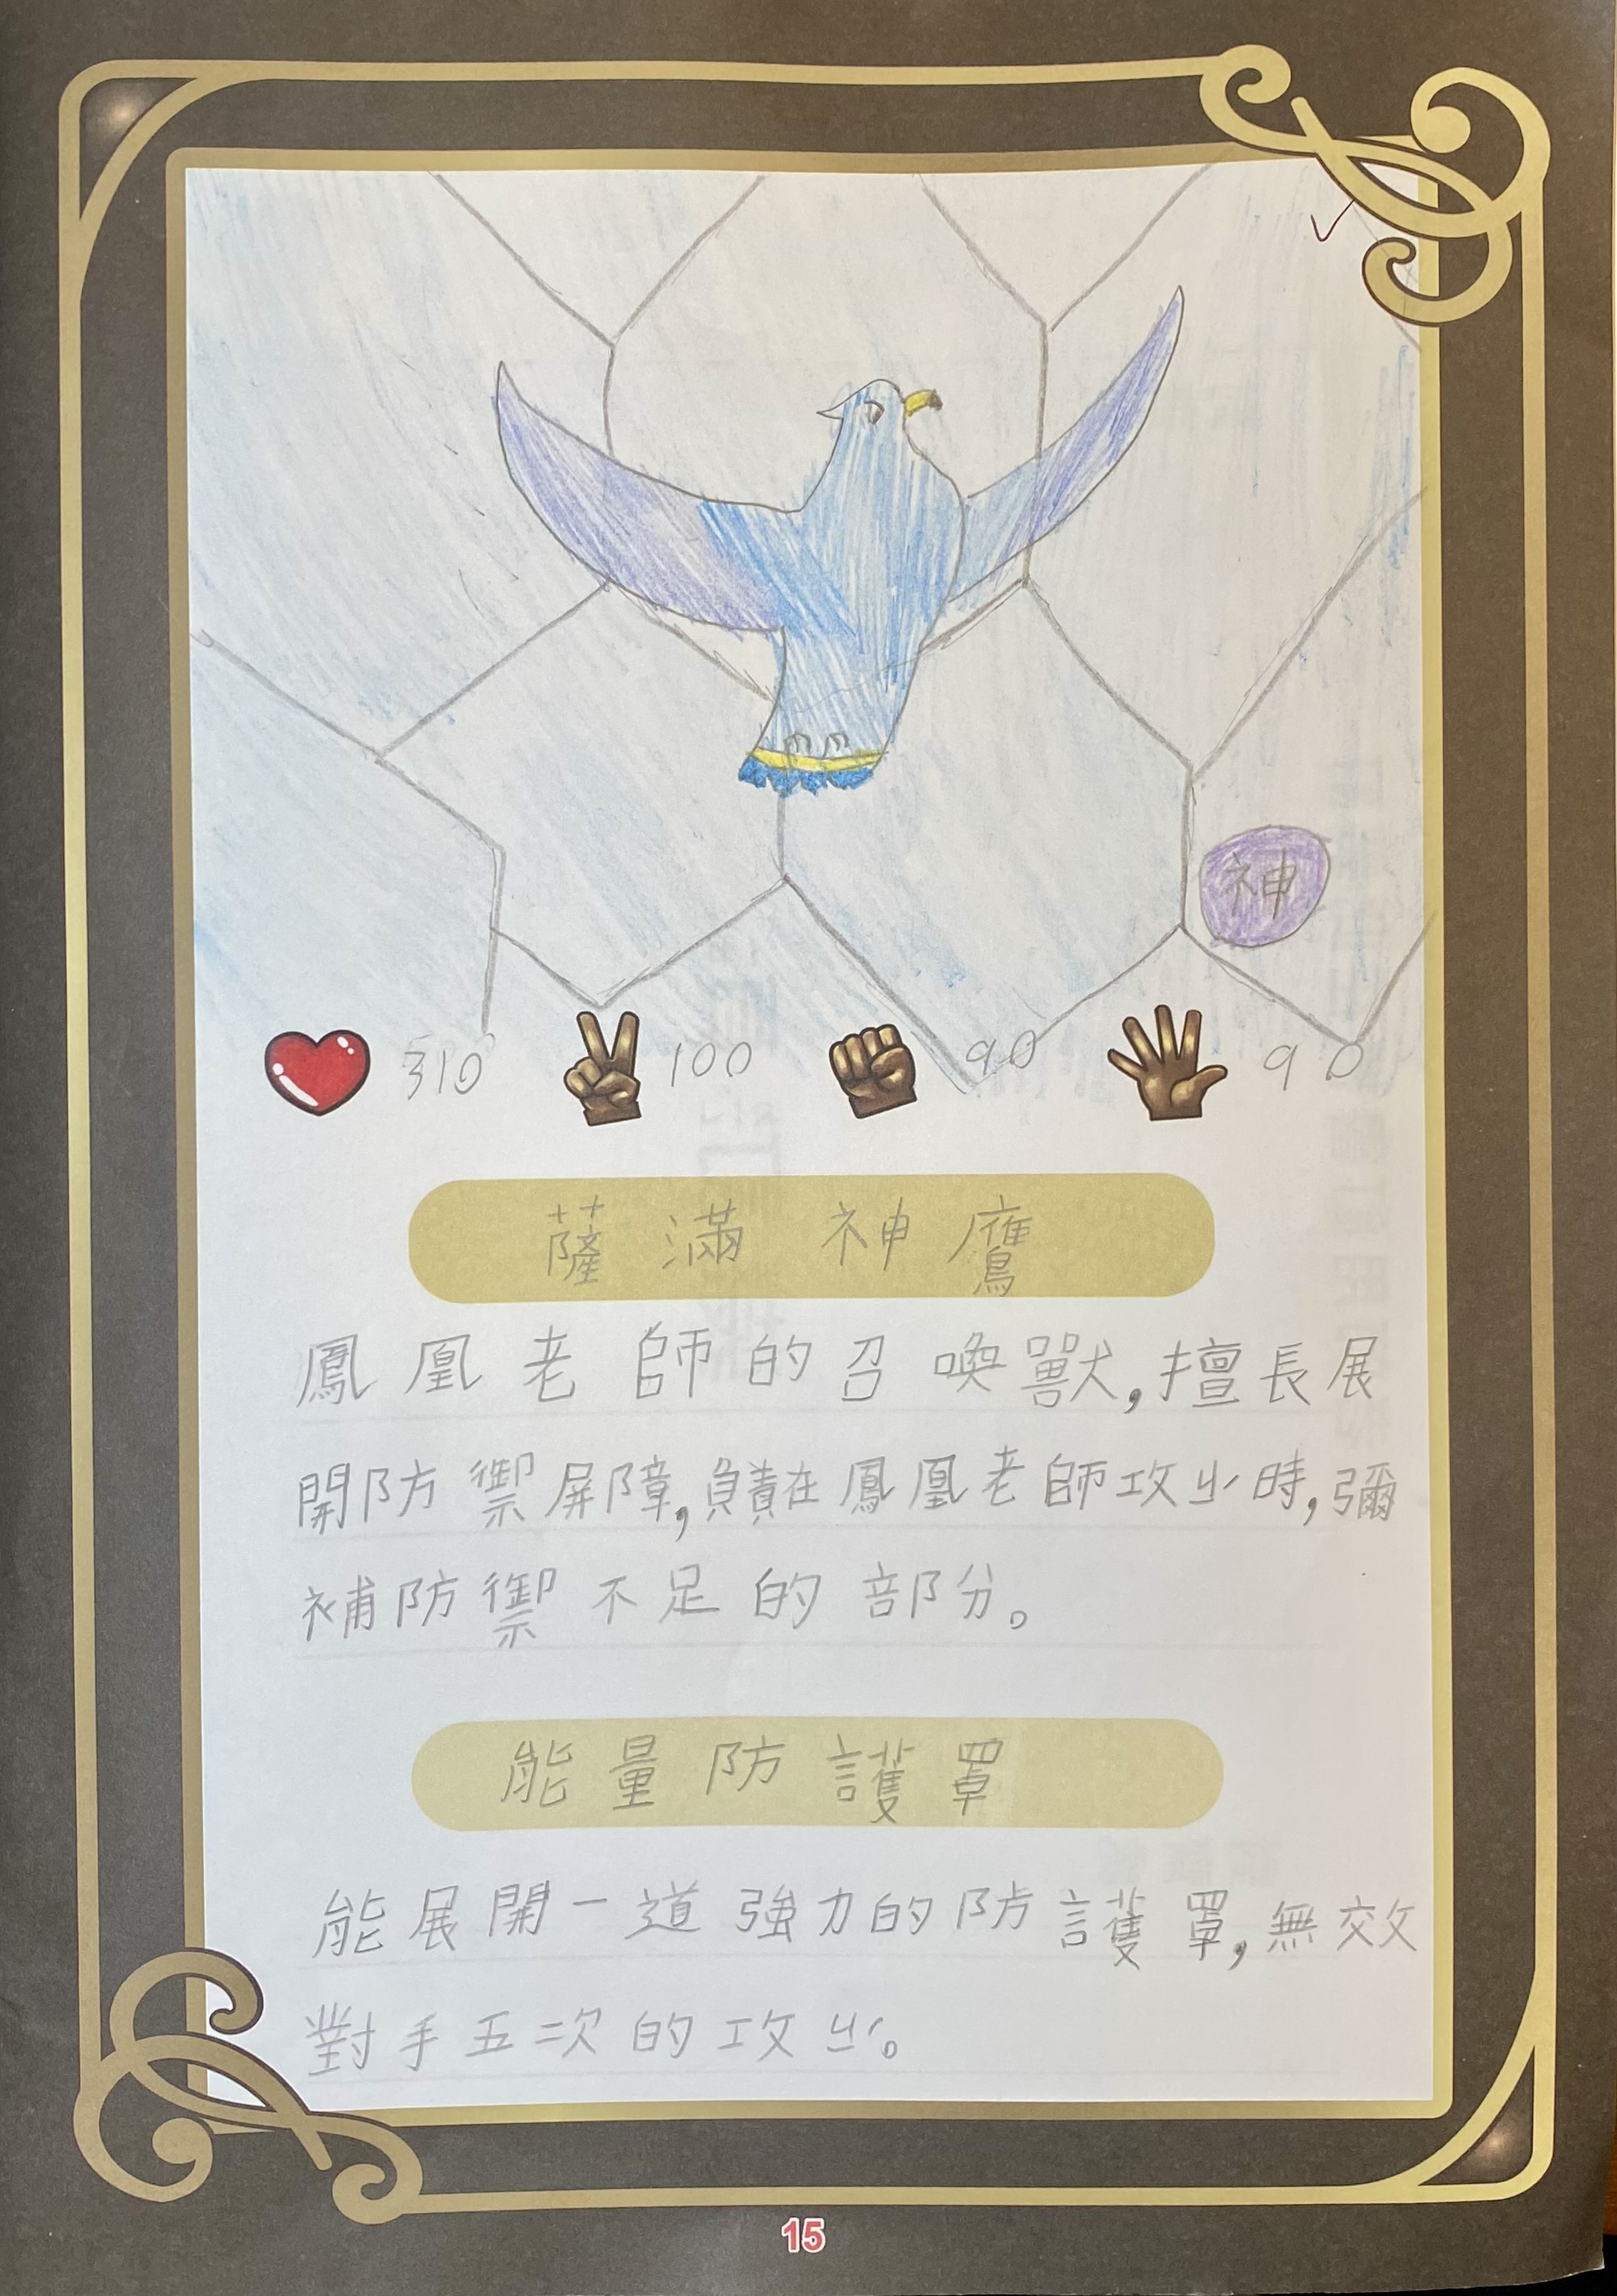 神
310 100 90 90
薩滿神鷹
鳳凰老師的召喚獸,擅長展
開防禦屏障,負責在鳳凰老師攻ㄐㄧˊ時,彌
補防禦不足的部分。
能量防護罩
能展開一道強力的防護罩,無效
對手五次的攻ㄐㄧˊ。
15